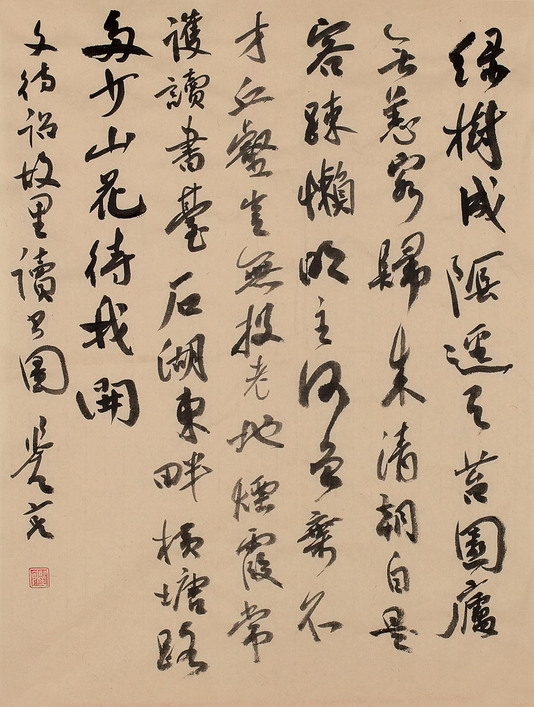 緑樹成隂逕有苔園廬
无恙客歸来清朝自是
容疎懶明主何曾棄不
才丘壑豈無投老地煙霞常
護讀書臺石湖東畔橫塘路
多少山花待我開
文待詔故里讀书圖